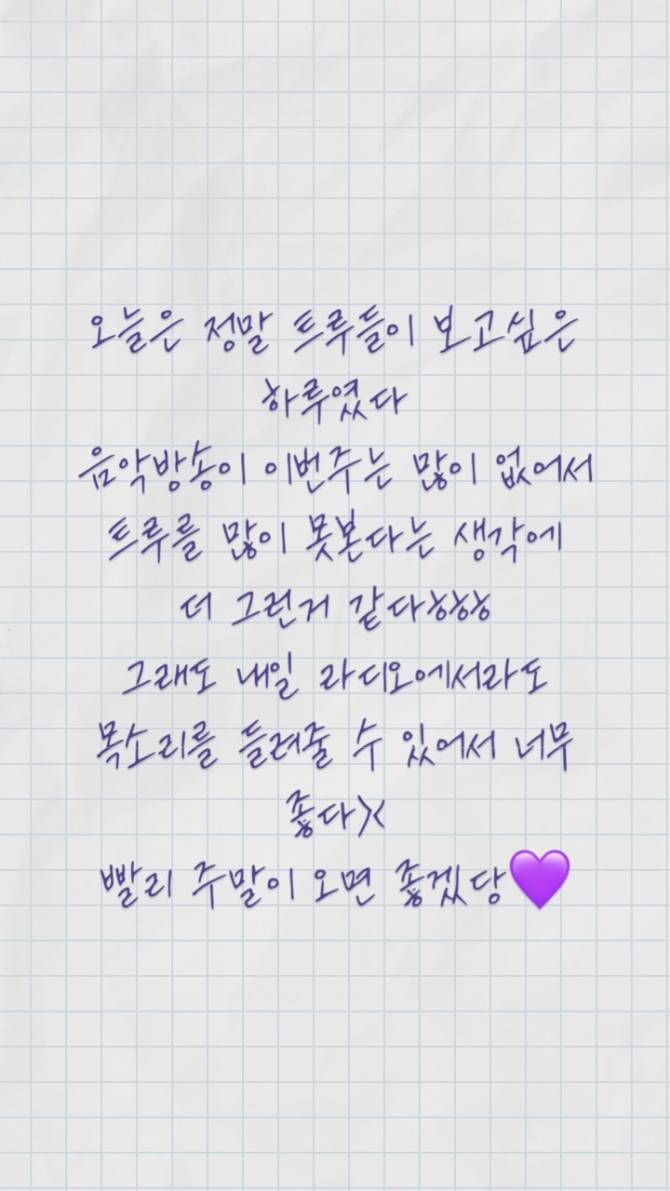 오늘은 정말 트루들이 보고싶은
하루였다
음악방송이 이번주는 많이 없어서
트루를 많이 못본다는 생각에
더 그런거 같다ㅎㅎㅎ
그래도 내일 라디오에서라도
목소리를 들려줄 수 있어서 너무
좋다><
빨리 주말이 오면 좋겠당💜